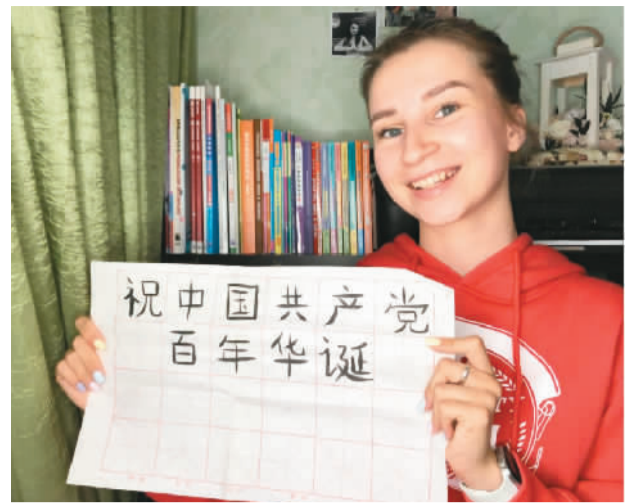 祝中国共产党
百年华诞